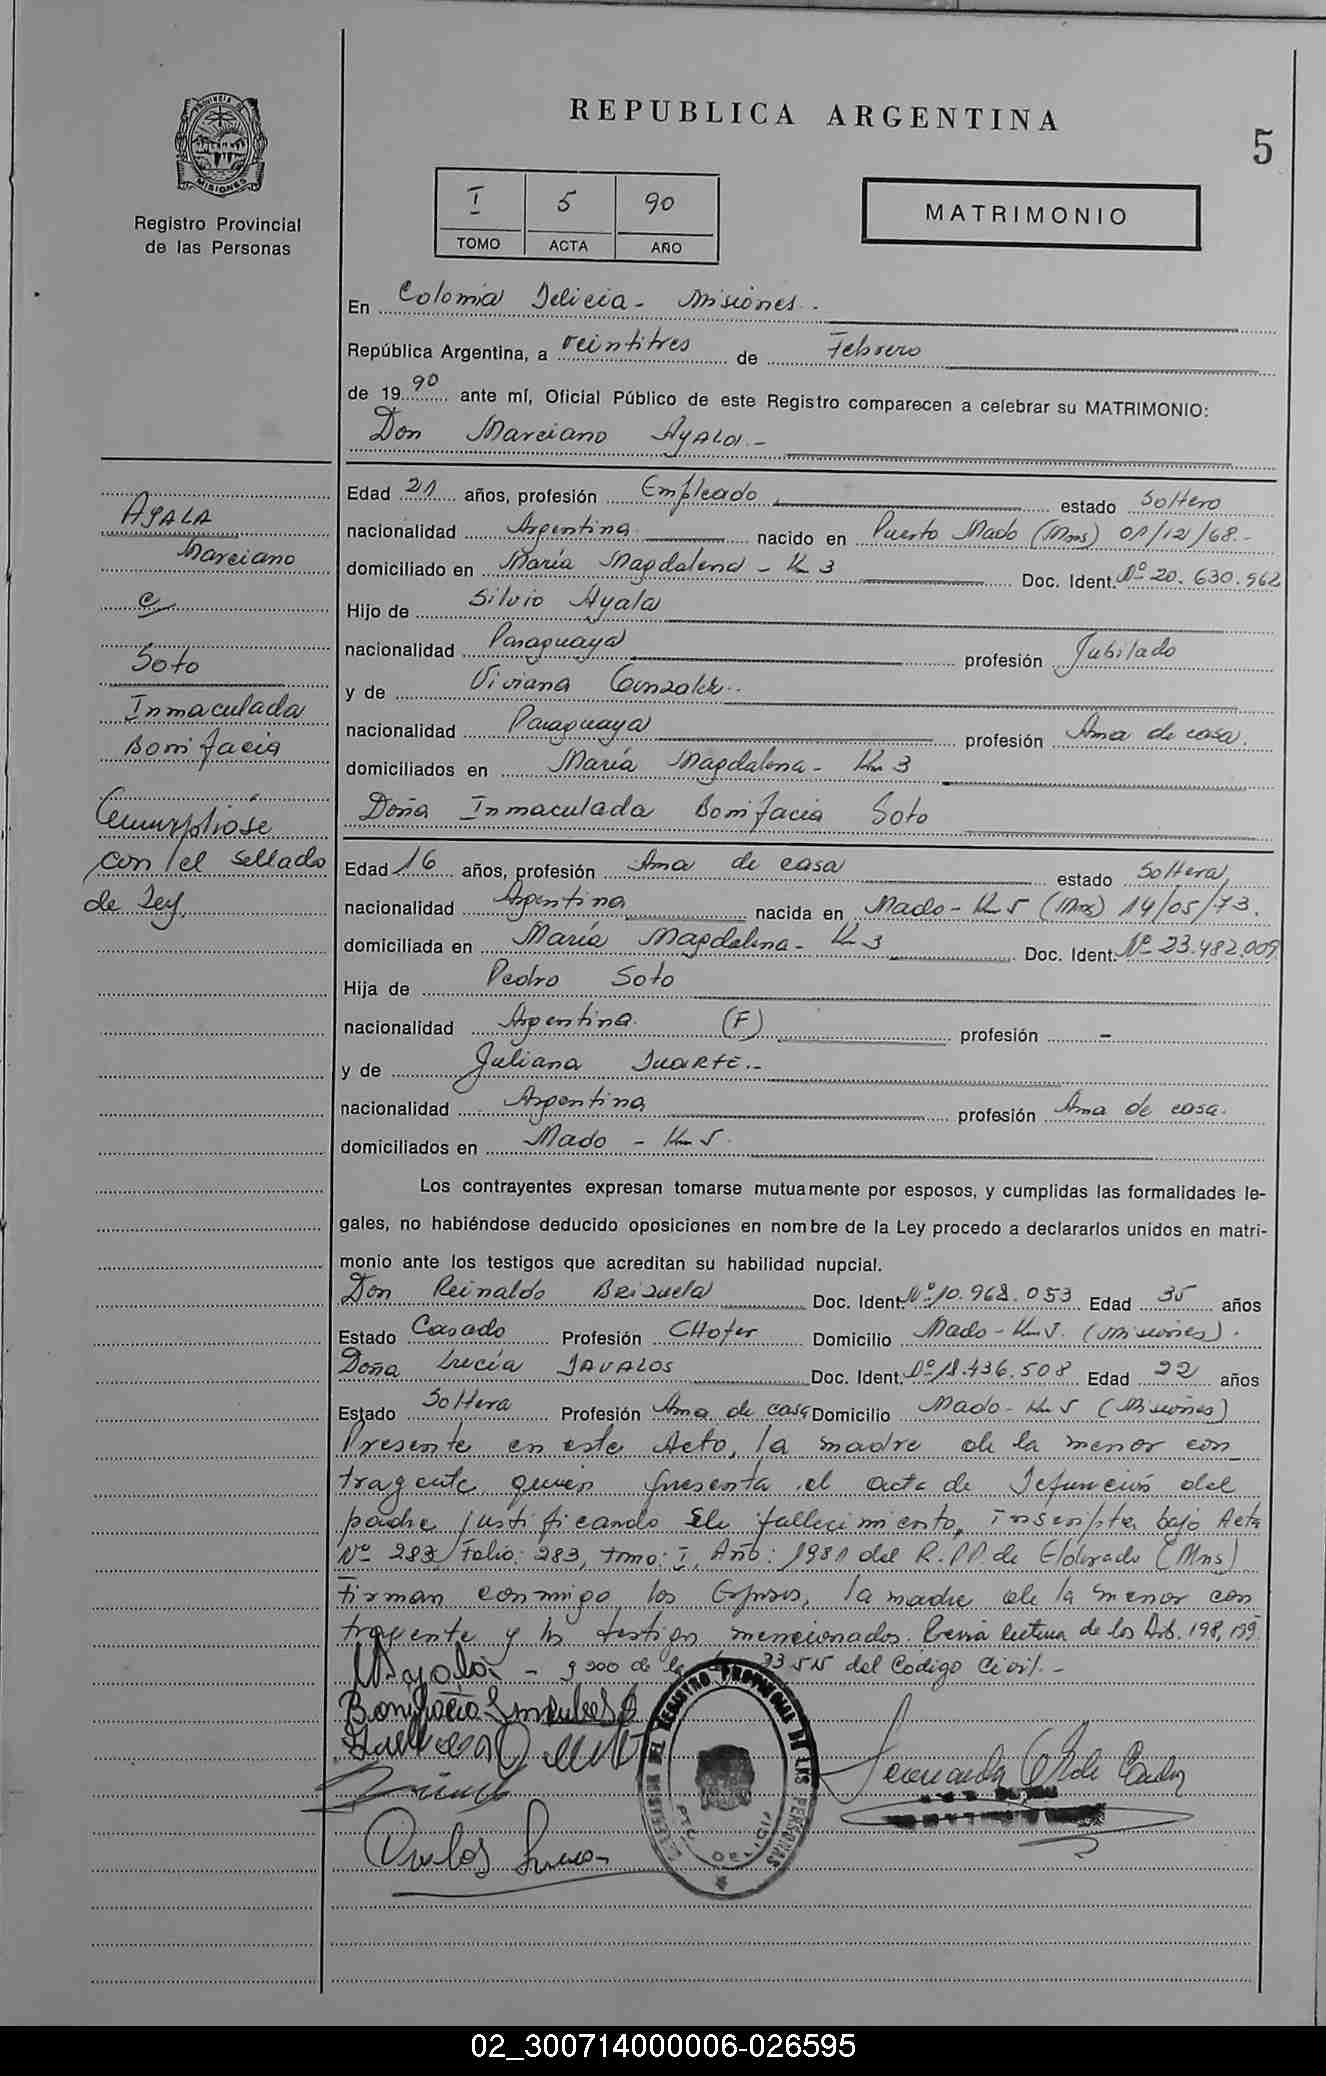 REPUBLICA ARGENTINA
5
PROVINCIA DE
MISIONES
Registro Provincial
de las Personas
I 5 90
TOMO ACTA AÑO
MATRIMONIO
En Colonia Delicia - Misiones -
República Argentina, a veintitres de Febrero
de 1990 ante mí, Oficial Público de este Registro comparecen a celebrar su MATRIMONIO:
Don Marciano Ayala -
AYALA
Marciano
c/
Soto
Inmaculada
Bonifacia
Cumplióse
con el sellado
de Ley.
Edad 21 años, profesión Empleado estado Soltero
nacionalidad Argentina nacido en Puerto Mado (Mns) 01/12/68.-
domiciliado en María Magdalena - Km 3 Doc. Ident. Nº 20.630.962
Hijo de Silvio Ayala
nacionalidad Paraguaya profesión Jubilado
y de Viviana Gonzalez.-
nacionalidad Paraguaya profesión Ama de casa.
domiciliados en María Magdalena - Km 3
Doña Inmaculada Bonifacia Soto
Edad 16 años, profesión Ama de casa estado Soltera
nacionalidad Argentina nacida en Mado - Km 5 (Mns) 14/05/73.
domiciliada en María Magdalena - Km 3 Doc. Ident. Nº 23.482.009
Hija de Pedro Soto
nacionalidad Argentina (F) profesión -
y de Juliana Duarte.-
nacionalidad Argentina profesión Ama de casa.
domiciliados en Mado - Km 5.
Los contrayentes expresan tomarse mutuamente por esposos, y cumplidas las formalidades le-
gales, no habiéndose deducido oposiciones en nombre de la Ley procedo a declararlos unidos en matri-
monio ante los testigos que acreditan su habilidad nupcial.
Don Reinaldo Brizuela Doc. Ident. Nº 10.968.053 Edad 35 años
Estado Casado Profesión CHofer Domicilio Mado - Km 5. (Misiones).
Doña Lucía Davalos Doc. Ident. Nº 18.436.508 Edad 22 años
Estado Soltera Profesión Ama de casa Domicilio Mado - Km 5 (Misiones)
Presente en este Acto, la madre de la menor con
trayente quien presenta el acta de Defunción del
padre justificando su fallecimiento, inscripta bajo Acta
Nº 283, Folio: 283, tomo: I, Año: 1981 del R.P.P. de Eldorado (Mns)
Firman conmigo los Esposos, la madre de la menor con
trayente y los testigos mencionados. Previa lectura de los Art. 198, 199
y 200 de la 23515 del Código Civil. -
MAyala
Bonifacia Inmaculada S
REGISTRO PROVINCIAL DE LAS PERSONAS
02_300714000006-026595